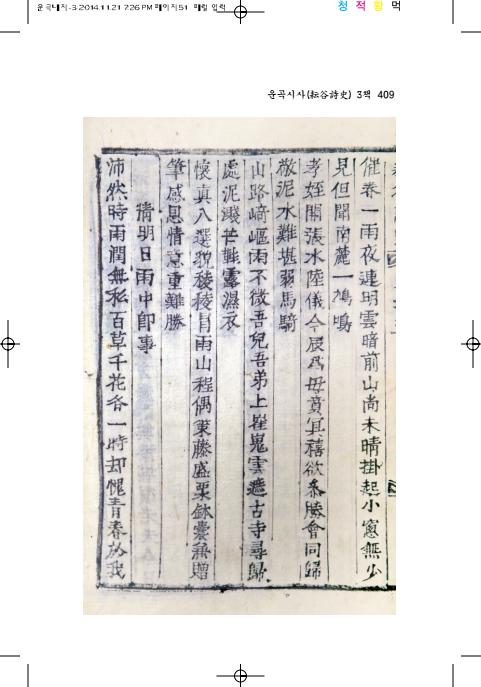 운곡시사-3 2014.11.21 7:26 PM 페이지51
청 적 황 먹
운곡시사(耘谷詩史) 3책 409
催春一雨夜連明雲暗前山尚未晴掛起小窓無少
見但聞南麓一鳩鳴
孝姪開張水陸儀今晨爲母賁冥禧欲叅勝會同歸
敬泥水難堪弱馬騎
山路﨑嶇雨不微吾兒吾弟上崔嵬雲遮古寺尋歸
處泥濺芒鞋露濕衣
懷真八選貌稜稜冐雨山程偶
藤盛栗鉢囊兼贈
筆感恩情意重難勝
清明日雨中即事
沛然時雨潤無私百草千花各一時却愧青春於我